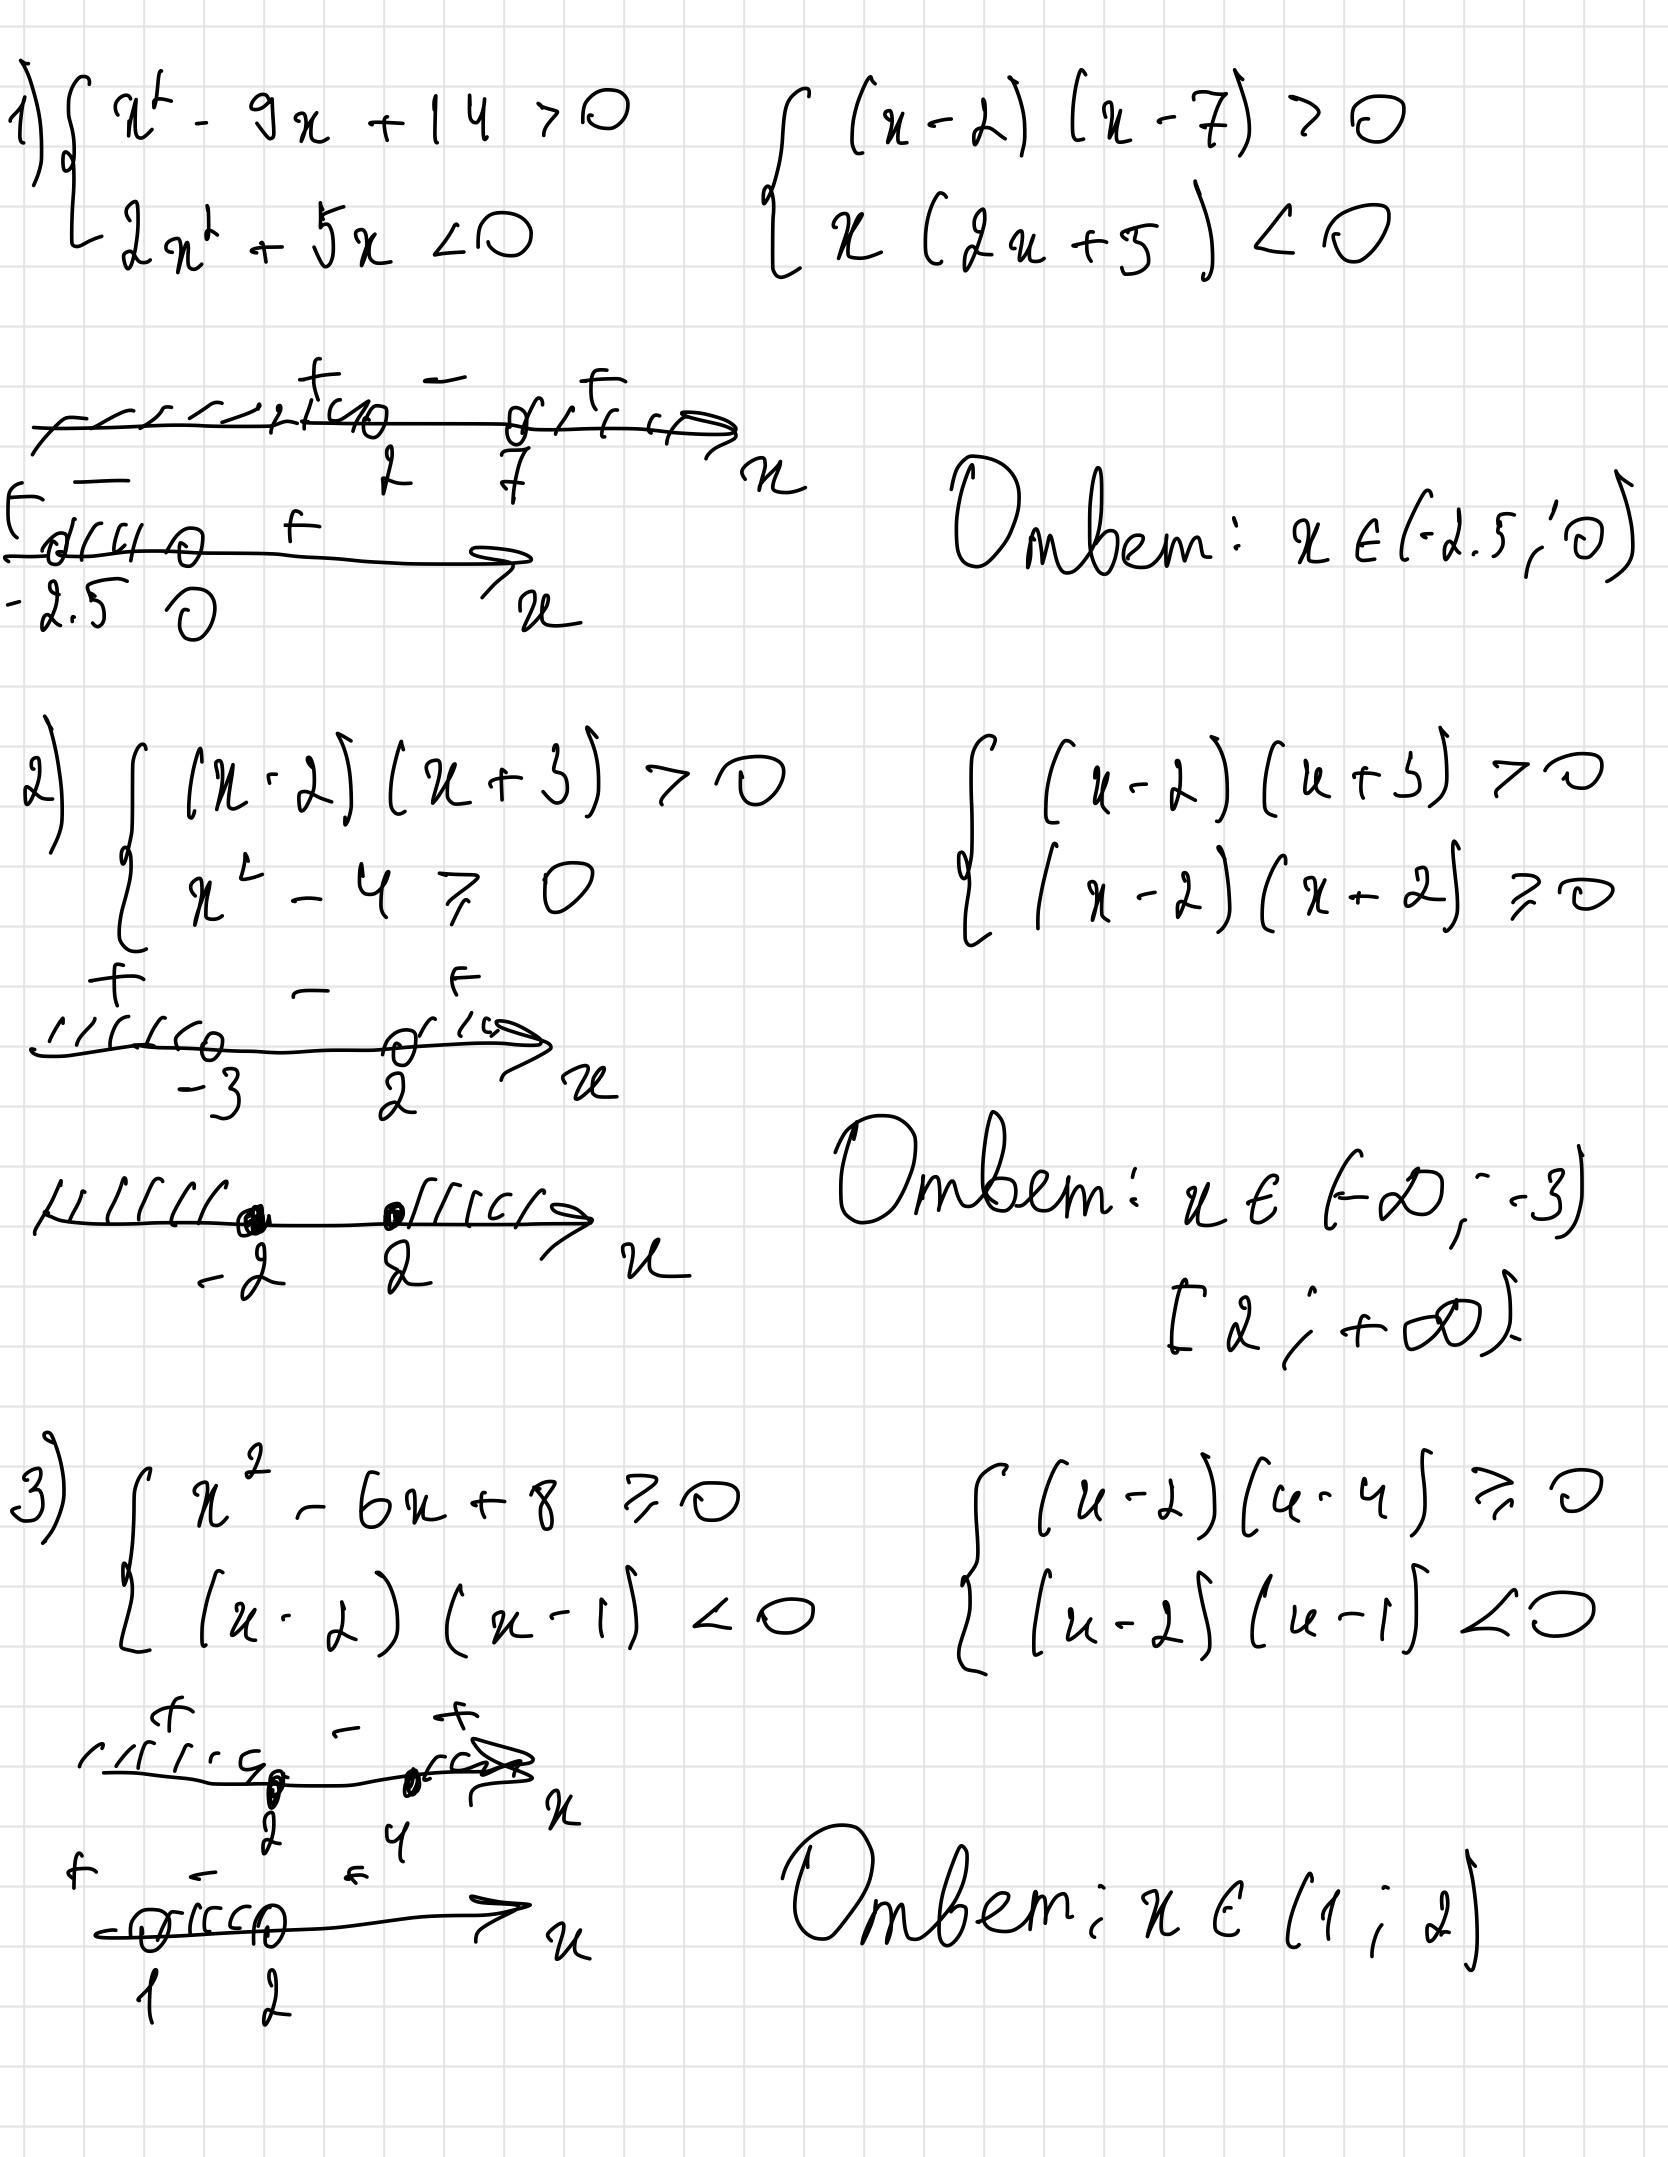 1) { x² - 9x + 14 > 0    { (x-2)(x-7) > 0
2x² + 5x < 0    x(2x+5) < 0
+ - +
2 7 x
+ - +
-2.5 0 x
Ответ: x ∈ (-2.5; 0)
2) { (x-2)(x+3) > 0    { (x-2)(x+3) > 0
x² - 4 ⩾ 0    (x-2)(x+2) ⩾ 0
+ - +
-3 2 x
-2 2 x
Ответ: x ∈ (-∞; -3)
[2; +∞).
3) { x² - 6x + 8 ⩾ 0    { (x-2)(x-4) ⩾ 0
(x-2)(x-1) < 0    (x-2)(x-1) < 0
+ - +
2 4 x
+ - +
1 2 x
Ответ: x ∈ (1; 2)